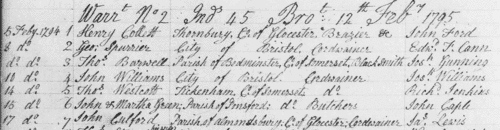 Warrt. No 2 Ind 45 Brot. 12th Feby 1795
5 Feby. 1794 1 Henry Collett Thornbury, Co. of Glocester Brazier &c John Ford
8 do. 2 Geo. Spurrier City of Bristol Cordwainer Edwd. T. Cann
do. do. 3 Thos. Barwell Parish of Bedminster, C. of Somerset, Black Smith Jos. Gunning
10 do. 4 John Williams City of Bristol. Cordwainer Jos. Williams
14 do. 5 Thos. Westcott Tickenham, C. of Somerset do. Richd. Jenkins
15 do. 6 John & Martha Green; Parish of do. Butchers John Caple
17 do. 7 John Parish of Almondsbury; C. of Glocester; Cordwainer Jas. Lewis